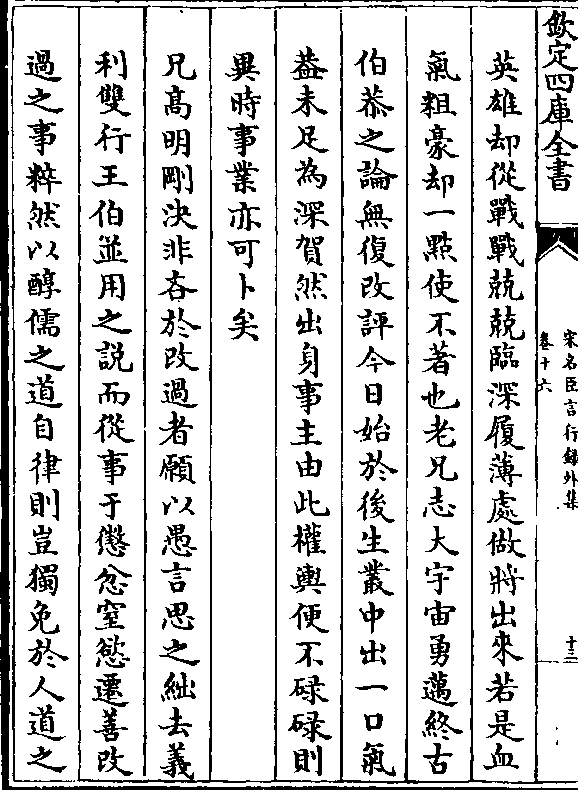 欽定四庫全書
宋名臣言行録外集
卷十六
十三
英雄却從戰戰兢兢臨深履薄處做將出來若是血
氣粗豪却一點使不著也老兄志大宇宙勇邁終古
伯恭之論無復改評今日始於後生叢中出一口氣
葢未足為深賀然出身事主由此權輿便不碌碌則
異時事業亦可卜矣
兄髙明剛決非吝於改過者願以愚言思之絀去義
利雙行王伯並用之説而從事于懲忿窒慾遷善改
過之事粹然以醇儒之道自律則豈獨免於人道之